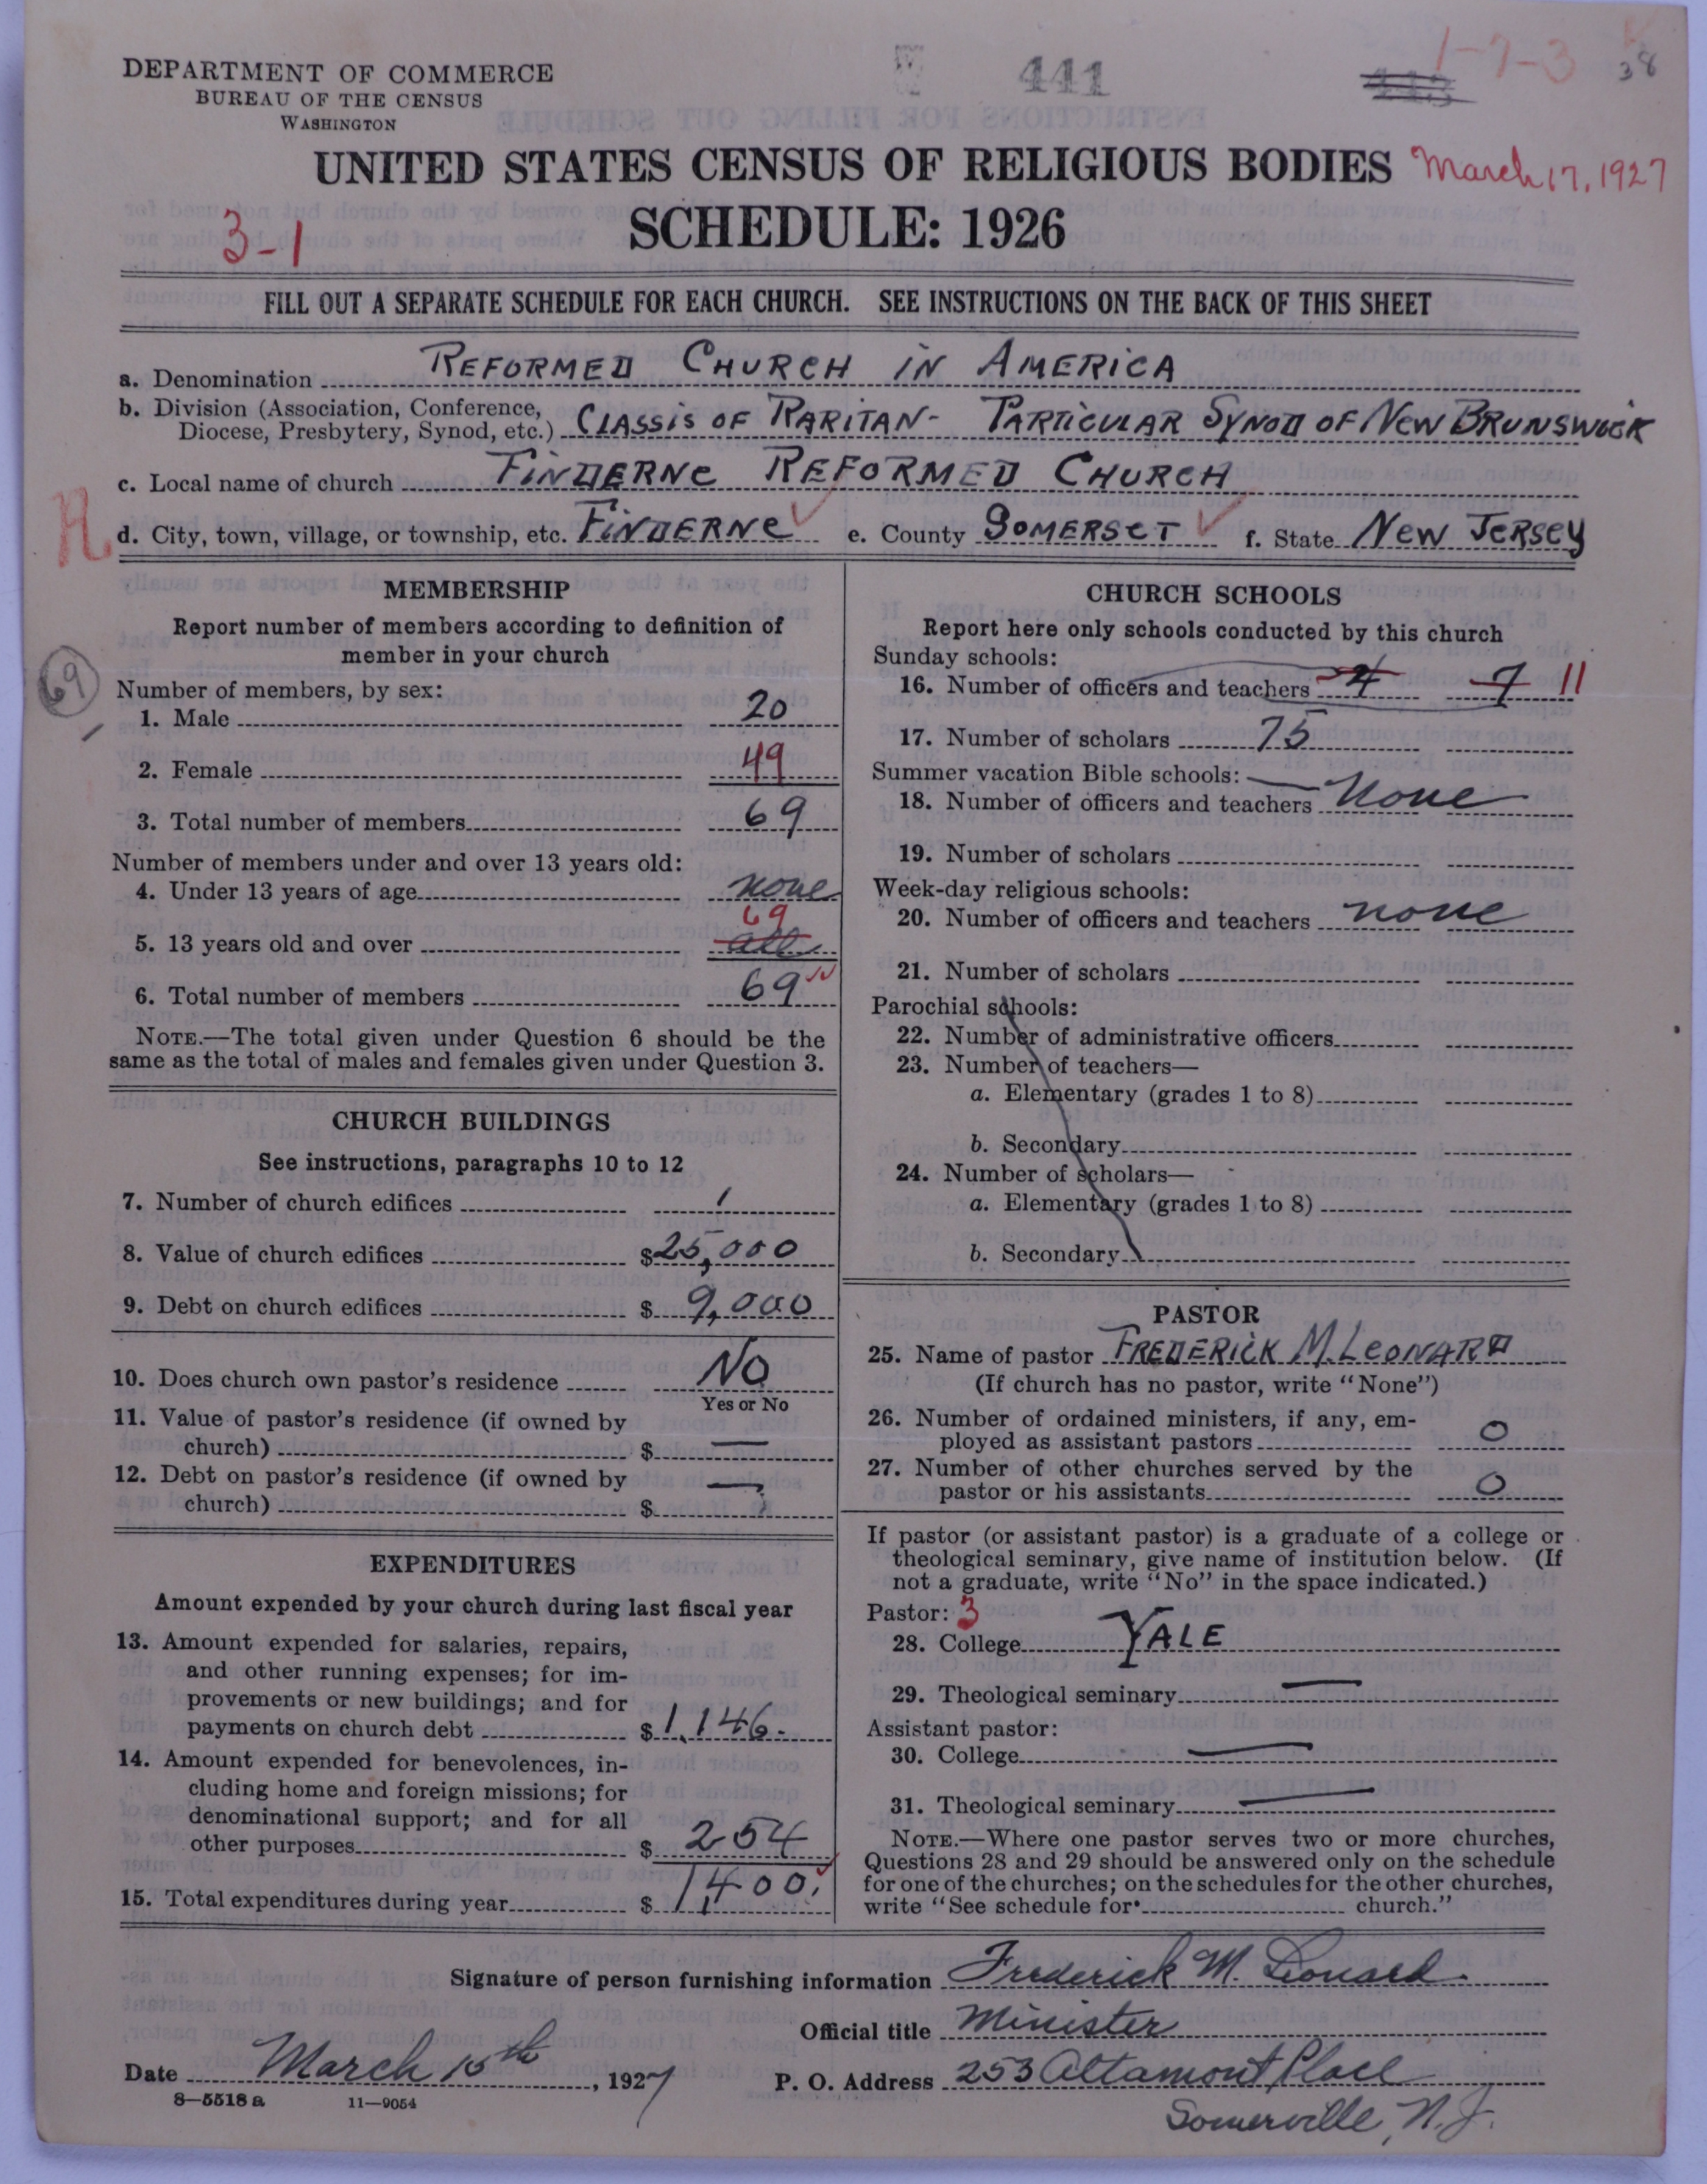 DEPARTMENT OF COMMERCE
BUREAU OF THE CENSUS
WASHINGTON
441
443
1-7-3
38
UNITED STATES CENSUS OF RELIGIOUS BODIES
March 17, 1927
SCHEDULE: 1926
3-1
FILL OUT A SEPARATE SCHEDULE FOR EACH CHURCH. SEE INSTRUCTIONS ON THE BACK OF THIS SHEET
a. Denomination REFORMED CHURCH IN AMERICA
b. Division (Association, Conference,
Diocese, Presbytery, Synod, etc.) CLASSIS OF RARITAN- PARTICULAR SYNOD OF NEW BRUNSWICK
c. Local name of church FINDERNE REFORMED CHURCH
d. City, town, village, or township, etc. FINDERNE e. County SOMERSET f. State NEW JERSEY
MEMBERSHIP
Report number of members according to definition of
member in your church
69
Number of members, by sex:
1. Male 20
2. Female 49
3. Total number of members 69
Number of members under and over 13 years old:
4. Under 13 years of age none
69
5. 13 years old and over all
6. Total number of members 69
NOTE.—The total given under Question 6 should be the
same as the total of males and females given under Question 3.
CHURCH BUILDINGS
See instructions, paragraphs 10 to 12
7. Number of church edifices 1
8. Value of church edifices $25,000
9. Debt on church edifices $ 9,000
10. Does church own pastor's residence NO
Yes or No
11. Value of pastor's residence (if owned by
church) $ —
12. Debt on pastor's residence (if owned by
church) $ —
EXPENDITURES
Amount expended by your church during last fiscal year
13. Amount expended for salaries, repairs,
and other running expenses; for im-
provements or new buildings; and for
payments on church debt $1,146.
14. Amount expended for benevolences, in-
cluding home and foreign missions; for
denominational support; and for all
other purposes $ 254
15. Total expenditures during year $ 1,400.
CHURCH SCHOOLS
Report here only schools conducted by this church
Sunday schools:
16. Number of officers and teachers 4 7 11
17. Number of scholars 75
Summer vacation Bible schools:
18. Number of officers and teachers None
19. Number of scholars
Week-day religious schools:
20. Number of officers and teachers none
21. Number of scholars
Parochial schools:
22. Number of administrative officers
23. Number of teachers—
a. Elementary (grades 1 to 8)
b. Secondary
24. Number of scholars—
a. Elementary (grades 1 to 8)
b. Secondary
PASTOR
25. Name of pastor FREDERICK M. LEONARD
(If church has no pastor, write "None")
26. Number of ordained ministers, if any, em-
ployed as assistant pastors 0
27. Number of other churches served by the
pastor or his assistants 0
If pastor (or assistant pastor) is a graduate of a college or
theological seminary, give name of institution below. (If
not a graduate, write "No" in the space indicated.)
Pastor: 3
28. College YALE
29. Theological seminary —
Assistant pastor:
30. College —
31. Theological seminary —
NOTE.—Where one pastor serves two or more churches,
Questions 28 and 29 should be answered only on the schedule
for one of the churches; on the schedules for the other churches,
write "See schedule for church."
Signature of person furnishing information Frederick M. Leonard
Official title Minister
Date March 15th, 1927
P. O. Address 253 Altamont Place
Somerville, N. J.
8—5518 a 11—9054